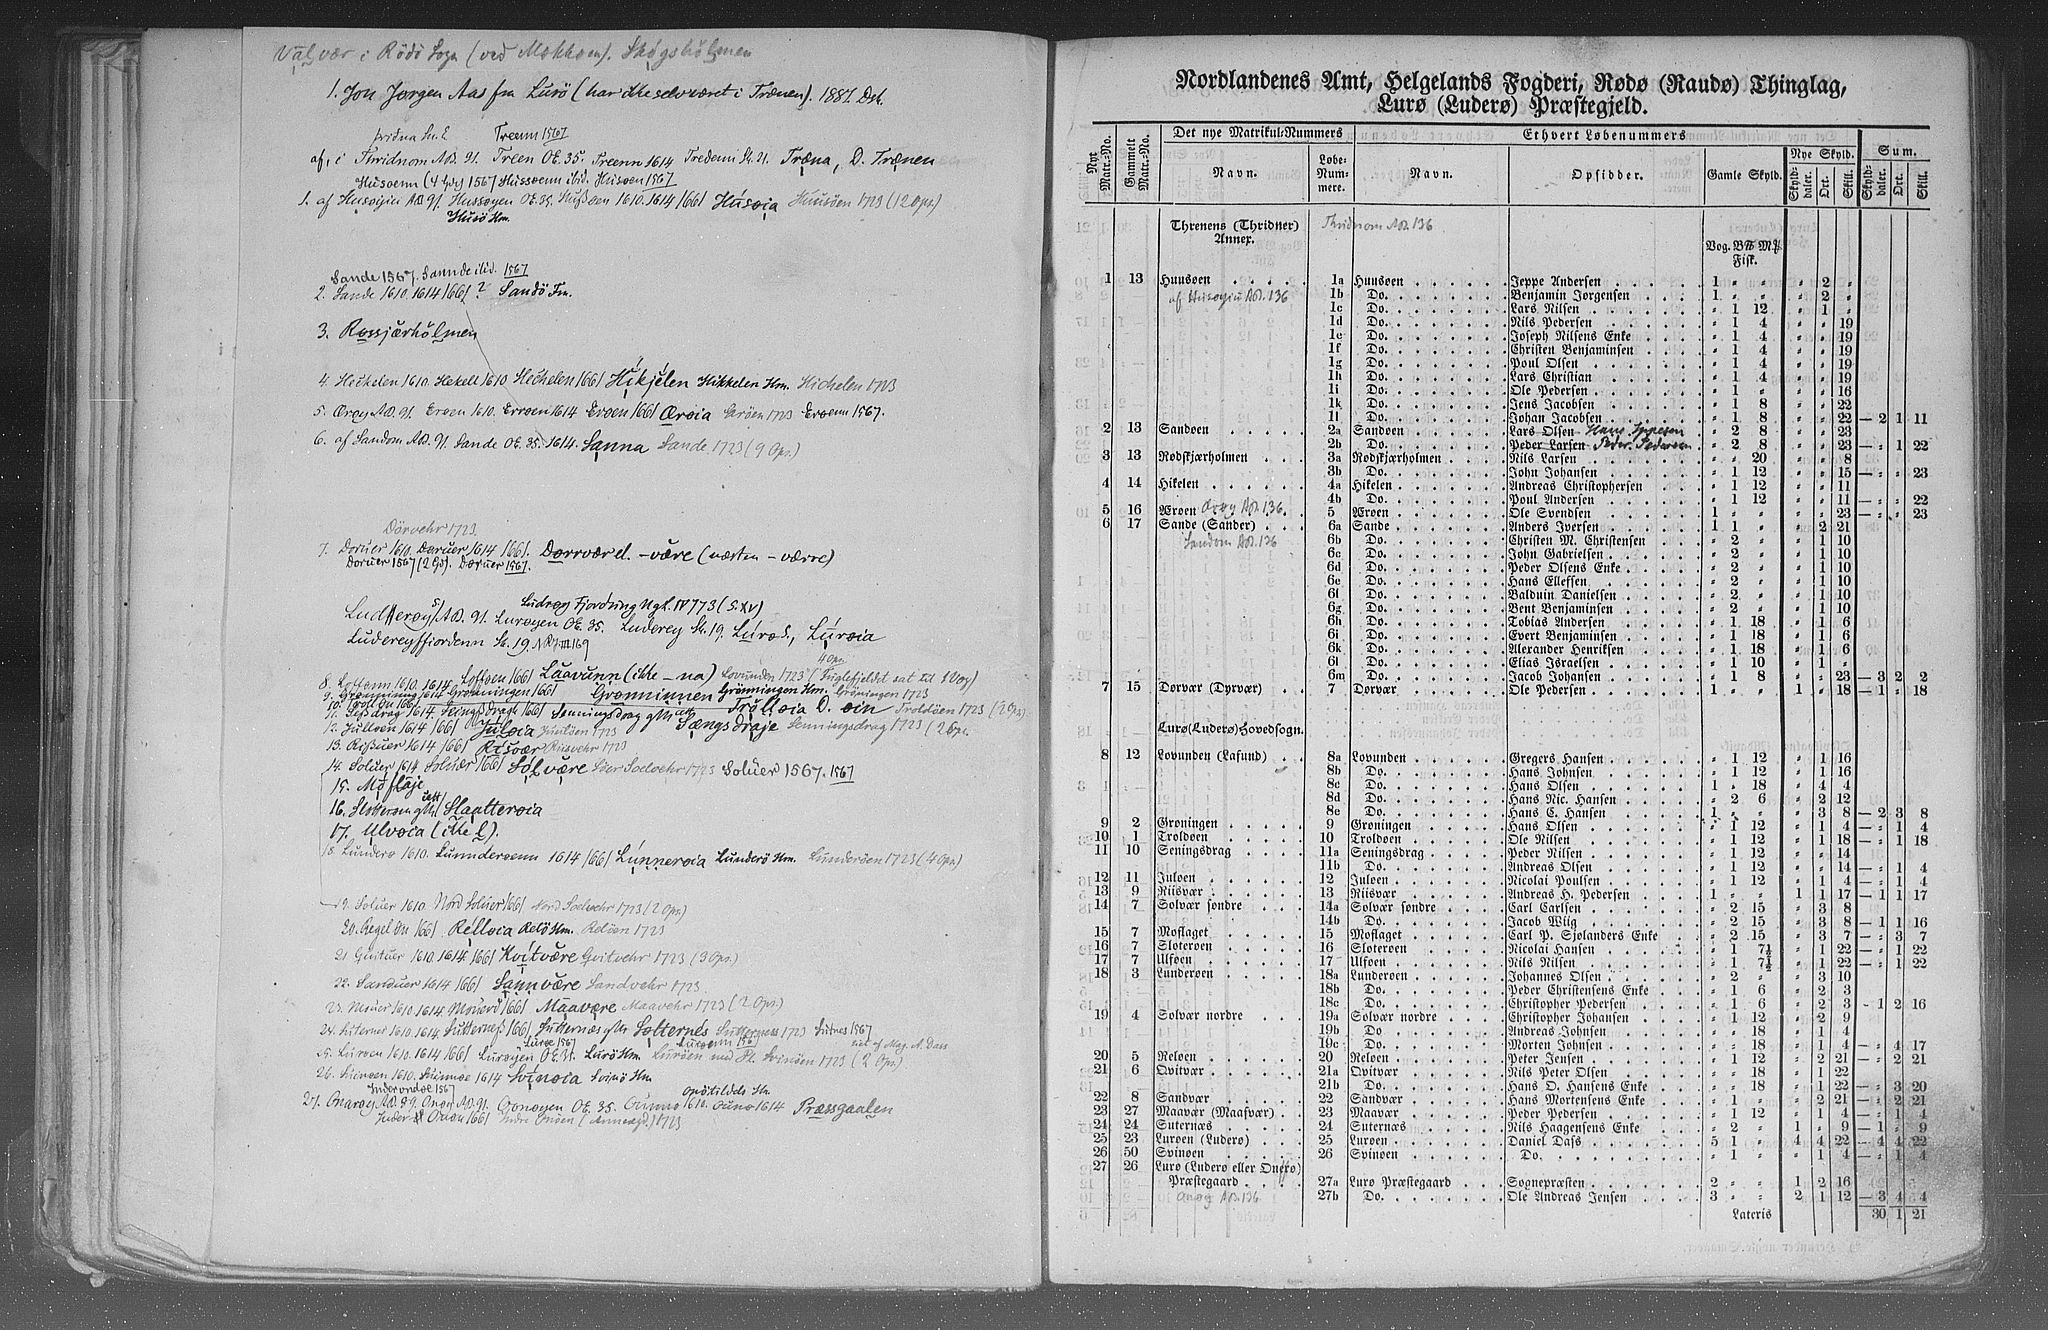 Valvær i Rödö Sogn (ved Mokholm). Skogsholmen
1. Jon Jørgen Aas fra Lurö (har ikke selv været i Trænen). 1887. Dsk.
Treenn 1567
af, i Thridnom AB. 91. Treen OE. 35. Treenn 1614 Tredemi St. 21. Træna, D. Trænen
Husoenn (4 Gds) 1567 Hussoenn ibid. Husoen 1567
1. af Husøyiu AB. 91. Hussøyen OE. 35. Hußoen 1610. 1614 1661 Husøia Huusöen 1723 (12 Ops.)
Husö Hm.
Sande 1567. Sannde ibid. 1567
2. Sande 1610. 1614 1661 ? Sandö Fm.
3. Rossjærholmen
4. Hechelen 1610. Hekell 1610 Hechelen 1661 Hikjelen Hikkelen Hm. Hichelen 1723
5. Ørøy AB. 91. Eroen 1610. Erroen 1614 Eroen 1661 Ærøia Ærøen 1723 Eroenn 1567.
6. af Sandom AB. 91. Sande OE. 35. 1614. Sanna Sande 1723 (9 Ops.)
Dörvehr 1723
7. Doruer 1610. Doruer 1614 1661. Dorrvær el. -være (næsten -værre)
Doruer 1567 (2 Gd). Døruer 1567.
Ludrøy Fjordung NgL. IV 773 (S. XV)
AB. 91. Lurøyen OE. 35. Luderey St. 19. Lurø D., Lurøia
Ludereyffiordenn St. 19.
8. Loffonn 1610. 1614 Loffoen 1661 Laavunn (ikke -na) Lovunden 1723 (Fuglefjeldet sat til 1 Vog)
9. Grønning 1610. 1614 Grønningen 1661 Grønninnen Grönningen Hm. Gröningen 1723
Trolløia D. øin Troldöen 1723 (2 Ops)
11. Seßdrag 1614. Seingsdragh 1661 Senningsdrag Sængsdraje Senningsdrag 1723 (2 Ops.
12. Julloen 1614 1661 Juløia Juulöen 1723
13. Rißuer 1614 1661 Risvær Riisvehr 1723
14. Soluer 1614 Soluær 1661 Sølvære Söer Soelvehr 1723 Soluer 1567. 1567
15. Mosflaje
16. Slaatterøia
17. Ulvøia (ikke l).
18. Lunderö 1610. Lunnderoenn 1614 1661 Lunnerøia Lunderö Hm. Lunderöen 1723 (4 Ops)
19. Soluer 1610. Nord Soluer 1661 Nord Soelvehr 1723 (2 Ops)
20. Regel Öu 1661. Relløia Relö Hm. Relöen 1723
21 Quituer 1610. 1614 1661 Kvitvære Qvitvehr 1723 (3 Ops.)
22. Sanduer 1614 1661 Sannvære Sandvehr 1723
23. Mouer 1610. 1614 Mouerd 1661 Maavære Maavehr 1723 (2 Ops.)
24. Sutternes 1610. 1614. Sutterneß 1661 Sutternæs Sotternés Sutternæs 1723 Sutnes 1567
Luroe 1567
25. Luroen 1610. 1614 1661 Lurøyen OE. 35. Lurö Hm. Luröen med Svinöen 1723 (2 Ops.)
26. Suinoen 1610. Suinnoe 1614 Svinøia Svinö Hm.
Inderondøe 1567
27. Onarøy AB. 89. Onøy AB. 91. Oonøyen OE. 35. Ounnö 1610. Ounö 1614 Præssgaalen
Inder Onøn 1661 Indre Onöen (Annexgd.) 1723
Nordlandenes Amt, Helgelands Fogderi, Rødø (Raudø) Thinglag,
Lurø (Luderø) Præstegjeld.
Nyt Matr.-No. Gammelt Matr.-No. Det nye Matrikul-Nummers Ethvert Løbenummers Sum.
Navn. Løbe-Nummere. Navn. Opsidder. Gamle Skyld. Nye Skyld. Skylddaler. Ort. Skill. Skylddaler. Ort. Skill.
Threnens (Thridner) Annex. Thridnom AB. 136
Vog. Bß Mß. Fisk.
1 13 Huusøen 1a Huusøen Jeppe Andersen 1 " " " 2 "
af Husøyiu AB. 136 1b Do. Benjamin Jørgensen 1 " " " 2 "
1c Do. Lars Nilsen " 1 12 " 1 "
1d Do. Nils Pedersen " 1 4 " " 19
1e Do. Joseph Nilsens Enke " 1 4 " " 19
1f Do. Christen Benjaminsen " 1 4 " " 19
1g Do. Poul Olsen " 1 4 " " 19
1h Do. Lars Christian " 1 4 " " 19
1i Do. Ole Pedersen " 1 " " " 16
1k Do. Jens Jacobsen " 1 8 " " 22
1l Do. Johan Jacobsen " 1 8 " " 22 — 2 1 11
2 13 Sandøen 2a Sandøen Lars Olsen Hans Ippesen " 2 8 " " 23
2b Do. Peder Larsen Peder Pedersen " 2 8 " " 23 — " 1 22
3 13 Rødskjærholmen 3a Rødskjærholmen Nils Larsen " " 20 " " 8
3b Do. John Johansen " 1 12 " " 15 — " " 23
4 14 Hikelen 4a Hikelen Andreas Christophersen " 1 12 " " 11
4b Do. Poul Andersen " 1 12 " " 11 — " " 22
5 16 Ærøen Ørøy AB. 136. 5 Ærøen Ole Svendsen 1 " " " " 23 — " " 23
6 17 Sande (Sander) 6a Sande Anders Iversen 1 1 " " 2 21
Sandom AB. 136 6b Do. Christen M. Christensen " 2 " " 1 10
6c Do. John Gabrielsen " 2 " " 1 10
6d Do. Peder Olsens Enke " 2 " " 1 10
6e Do. Hans Ellefsen " 2 " " 1 10
6f Do. Balduin Danielsen " 2 " " 1 10
6g Do. Bent Benjaminsen " 2 " " 1 10
6h Do. Tobias Andersen " 1 18 " 1 6
6i Do. Evert Benjaminsen " 1 18 " 1 6
6k Do. Alexander Henriksen " 1 18 " 1 6
6l Do. Elias Israelsen " 1 10 " 1 "
6m Do. Jacob Johansen " 1 8 " " 23 — 3 2 2
7 15 Dorvær (Dyrvær) 7 Dørvær Ole Pedersen 1 " " " 1 18 — " 1 18
Lurø (Luderø) Hovedsogn.
8 12 Lovunden (Lafund) 8a Lovunden Gregers Hansen " 1 12 " 1 16
8b Do. Hans Johnsen " 1 12 " 1 16
8c Do. Hans Olsen 1 " 18 " 4 4
8d Do. Hans Nic. Hansen " 2 6 " 2 12
8e Do. Hans C. Hansen 1 " " " 3 8 — 2 3 8
9 2 Groningen 9 Groningen Hans Olsen " 1 12 " 1 4 — " 1 4
10 1 Troldøen 10 Troldøen Ole Nilsen " 1 12 " 1 18 — " 1 18
11 10 Seningsdrag 11a Seningsdrag Peder Nilsen " 1 12 " " 14
11b Do. Andreas Olsen " 1 12 " " 14 — " 1 4
12 11 Juløen 12 Juløen Nicolai Poulsen " 1 12 " 1 4 — " 1 4
13 9 Riisvær 13 Riisvær Andreas H. Pedersen 1 " " 1 1 17 — 1 1 17
14 7 Solvær søndre 14a Solvær søndre Carl Carlsen " 2 15 " 3 8
14b Do. Jacob Wiig " 2 15 " 3 8 — 1 1 16
15 7 Mosflaget 15 Mosflaget Carl P. Sjølanders Enke " 2 15 " 3 7 — " 3 7
16 7 Sloterøen 16 Sloterøen Nicolai Hansen " 1 7½ " 1 22 — " 1 22
17 7 Ulføen 17 Ulføen Nils Nilsen " 1 7½ " 1 22 — " 1 22
18 3 Lunderøen 18a Lunderøen Johannes Olsen " 2 " " 3 10
18b Do. Peder Christensens Enke " 1 6 " 2 3
18c Do. Christopher Pedersen " 1 6 " 2 3 — 1 2 16
19 4 Solvær nordre 19a Solvær nordre Christopher Johansen " 1 12 " 2 9
19b Do. Andreas Johnsen " " 18 " 1 4
19c Do. Morten Johnsen " " 18 " 1 4 — " 4 17
20 5 Reløen 20 Reløen Peter Jensen " 1 12 " 2 21 — " 2 21
21 6 Qvitvær 21a Qvitvær Nils Peter Olsen " " 18 " 1 22
21b Do. Hans O. Hansens Enke " " 18 " 1 22 — " 3 20
22 8 Sandvær 22 Sandvær Hans Mortensens Enke " 1 " " 2 21 — " 2 21
23 27 Maavær (Maasvær) 23 Maavær Peder Pedersen " 1 12 " 1 4 — " 1 4
24 24 Suternæs 24 Suternæs Nils Haagensens Enke " 2 " 1 " 9 — 1 " 9
25 23 Lurøen (Luderø) 25 Lurøen Daniel Dass 5 1 " 4 4 22 — 4 4 22
26 50 Svinøen 26 Svinøen Do. " 1 " " 1 4 — " 1 4
27 26 Lurø (Luderø eller Onøyø)
Præstegaard 27a Lurø Præstegaard Sognepræsten 2 " " 1 2 16
Onøy AB. 136. 27b Do. Ole Andreas Jensen 3 " " 2 1 12 — 3 4 4
Lateris 30 1 21